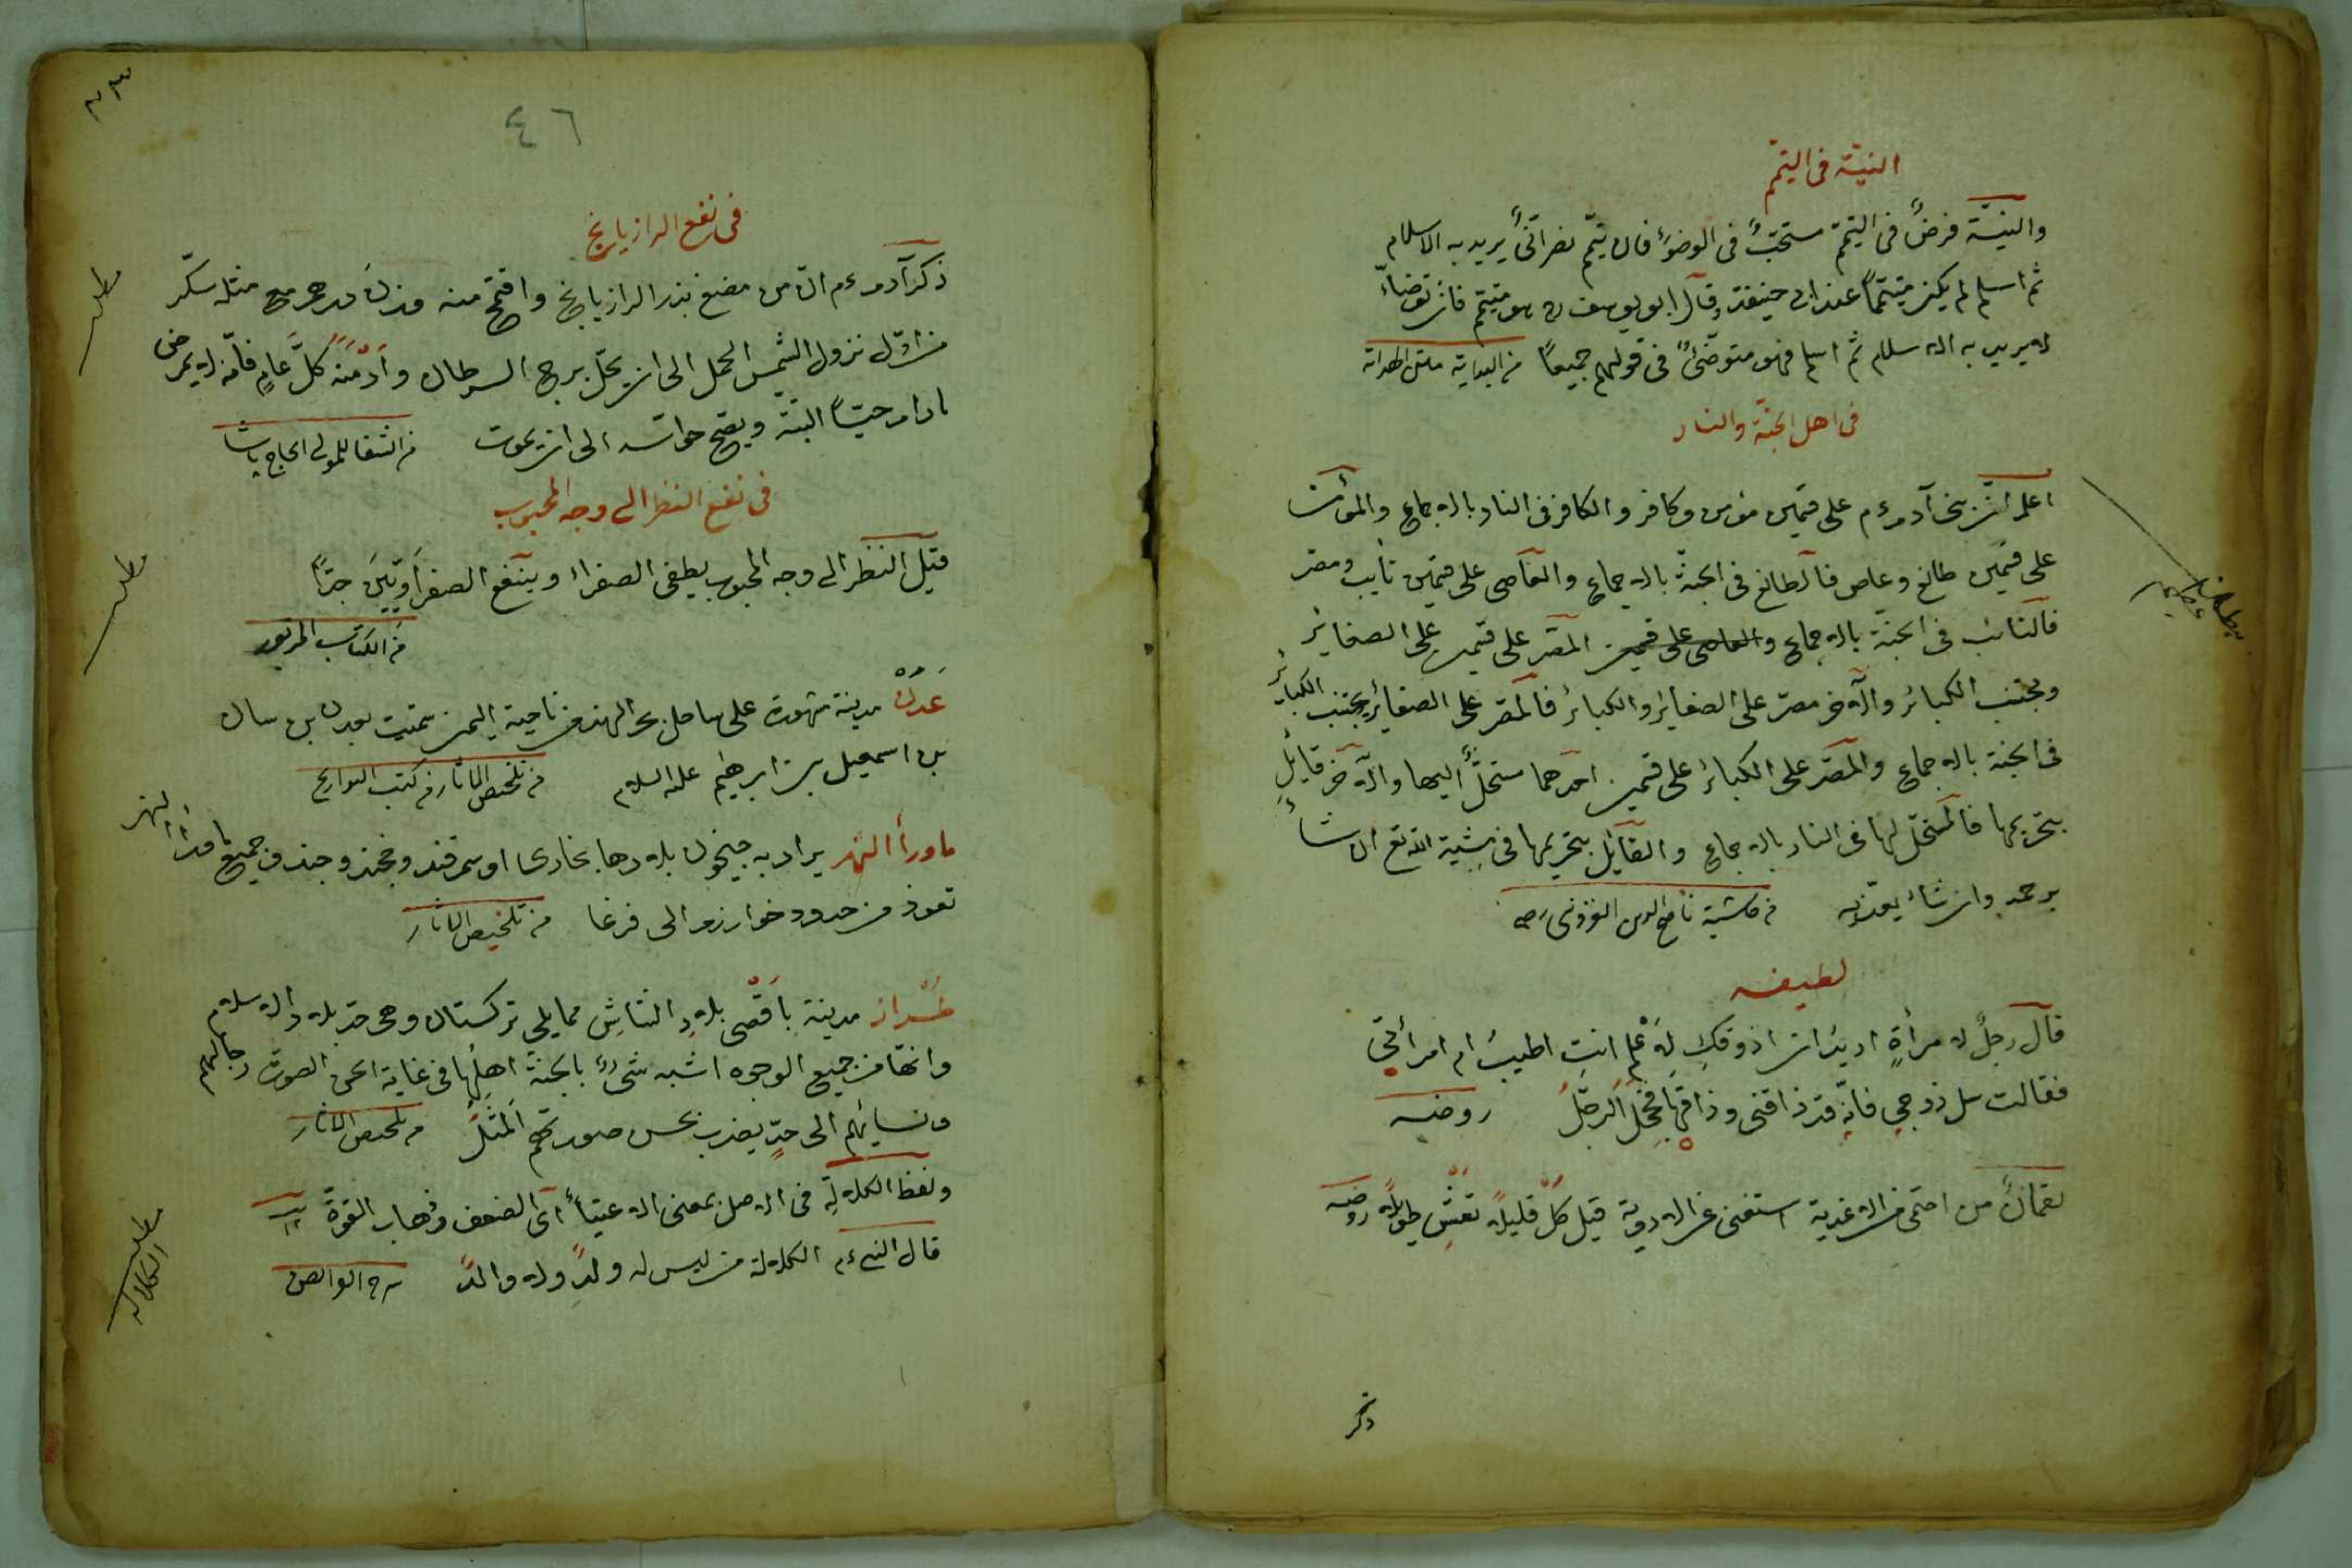 النيّة في التيمّم
والنيّة فرضٌ في التيمّم مستحبٌّ في الوضوء فان تيمّم نصرانيٌّ يريد به الاسلام
ثم اسلم لم يكن متيمّماً عند ابي حنيفة وقال ابو يوسف ره هو متيمّم فان توضّأ
لا يريد به الاسلام ثم اسلم فهو متوضّئٌ في قولهم جميعاً من البداية
في اهل الجنّة والنار
اعلم انّ بني آدم ءم على قسمين مؤمن وكافر والكافر في النار بالاجماع والمؤمن
على قسمين طالع وعاص فالطالع في الجنّة بالاجماع والعاصي على قسمين تايب ومصر
فالتائب في الجنّة بالاجماع والعاصي على قسمين المصرّ على قسمين على الصغاير
ومجتنب الكبائر والآخر مصرّ على الصغاير والكبائر فالمصر على الصغائر ومجتنب الكباير
في الجنة بالاجماع والمصرّ على الكبائر على قسمين احدهما مستحلٌّ اليها والآخر قايلٍ
بتحريمها فالمستحلّ لها في النار بالاجماع والقايل بتحريمها في مشية الله تع ان شاء
يرحمه وان شاء يعذّبه من حاشية ناصح الدين الغزنوي رحمه
لطيفه
قال رجلٌ لامرأةٍ اريدُ ان اذوقكِ لاعلم انتِ اطيبُ ام امرأتي
فقالت سل زوجي فانّه قد ذاقني وذاقها فخجل الرجلُ روضه
لقمانُ من احتمى من الاغدية استغنى عن الادوية قيل كُلْ قليلاً تعِشْ طويلاً روضه
ذكر
مطلب عظيم
٤٦
في نفع الرازيانج
ذكر آدم ءم انّ من مضغ بذر الرازيانج واقتحم منه وزنَ درهم مع مثله سكّر
من اوّل نزول الشمس الحمل الى ان يحلّ برج السرطان وأدْمَنَه كلَّ عامٍ فانّه لا يمرض
مادام حيّاً البتّة ويصحّ حواسّه الى ان يموت من الشفا للمولى الحاج پاشا
في نفع النظر الى وجه المحبوب
قيل النظر الى وجه المحبوب يطفى الصفراء وينفع الصفراويّين جدّاً
من الكتاب المزبور
عَدَنْ مدينة مشهورة على ساحل بحر الهند من ناحية اليمن سمّيت بعدن بن سنان
بن اسمعيل بن ابرهيم عليه السلام من تلخيص الاثار من كتب التواريخ
ماوراء النهر يراد به جيحون بلادها بخارى او سمرقند وخجند وجند من جميع ماوراء النهر
تعوذ من حدود خوارزم الى فرغا من تلخيص الاثار
طَرَاز مدينة باَقْصى بلادِ الشاشِ مما يلي تركستان وهى حدّ بلاد الاسلام
وانّها من جميع الوجوه اشبه شىءٍ بالجنّة اهلها في غاية الحسن الصوت رجالهم
ونسائهم الى حدٍّ يضرب بحسن صورتهم المثلُ من تلخيص الاثار
ولفظ الكلالةِ في الاصل بمعنى الاعياء اي الضعف وذهاب القوّة
قال النبي ءم الكلالة من ليس له ولدٌ ولا والدٌ
مطلب
مطلب
مطلب الكلالة